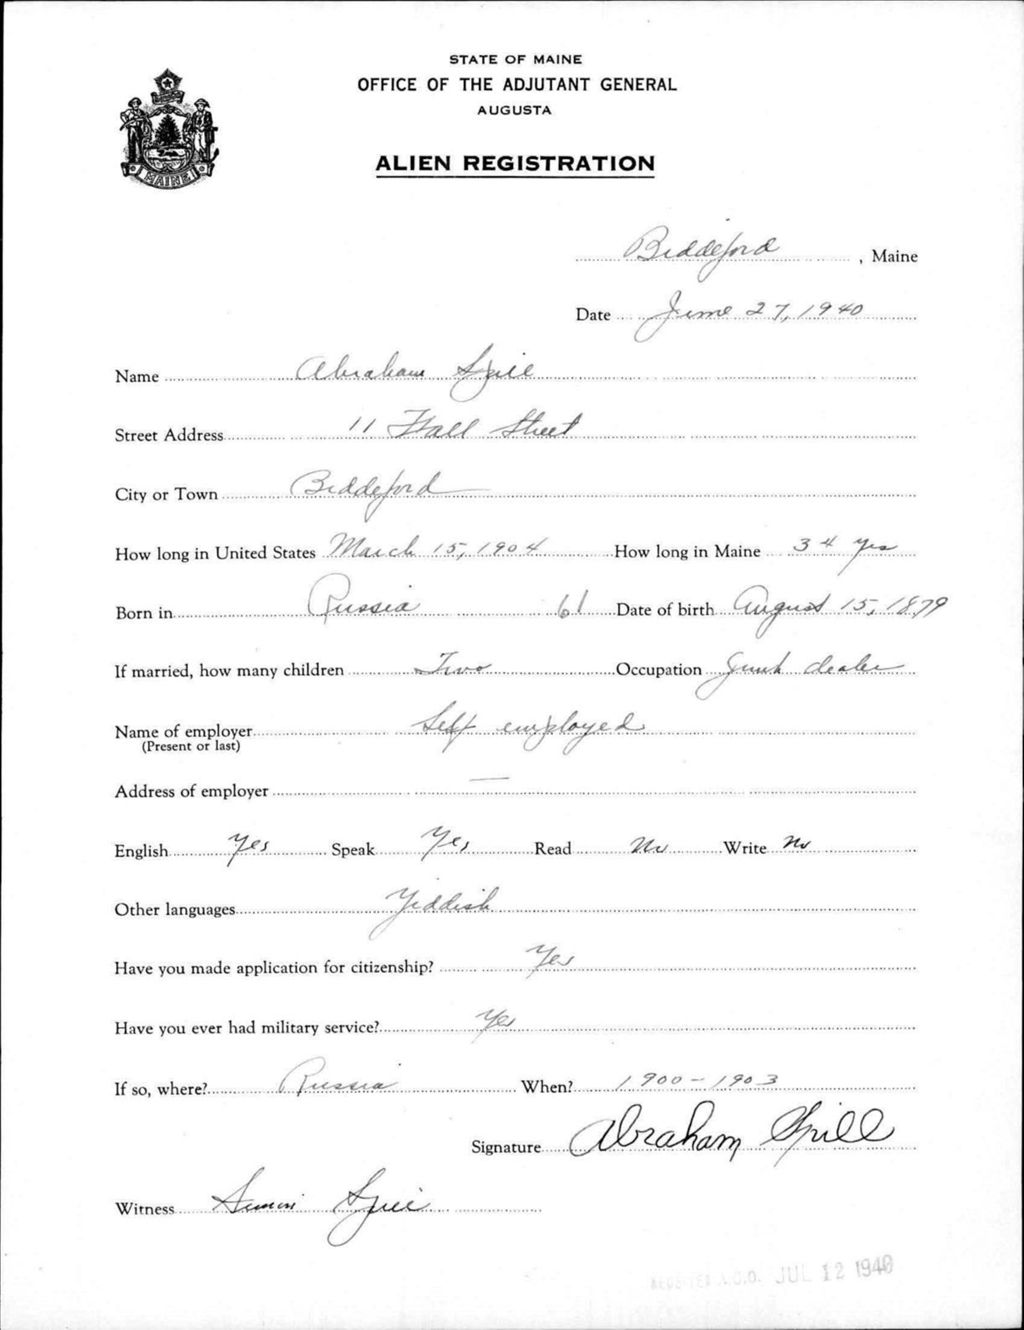 STATE OF MAINE
OFFICE OF THE ADJUTANT GENERAL
AUGUSTA
ALIEN REGISTRATION
MAINE
Biddeford, Maine
Date June 27, 1940
Name Abraham Spill
Street Address 11 Hall Street
City or Town Biddeford
How long in United States March 15, 1904 How long in Maine 34 yrs
Born in Russia 61 Date of birth August 15, 1879
If married, how many children Two Occupation Junk dealer
Name of employer Self employed
(Present or last)
Address of employer —
English Yes Speak Yes Read No Write No
Other languages Yiddish
Have you made application for citizenship? Yes
Have you ever had military service? Yes
If so, where? Russia When? 1900-1903
Signature Abraham Spill
Witness Spill
A.G.O. JUL 12 1940